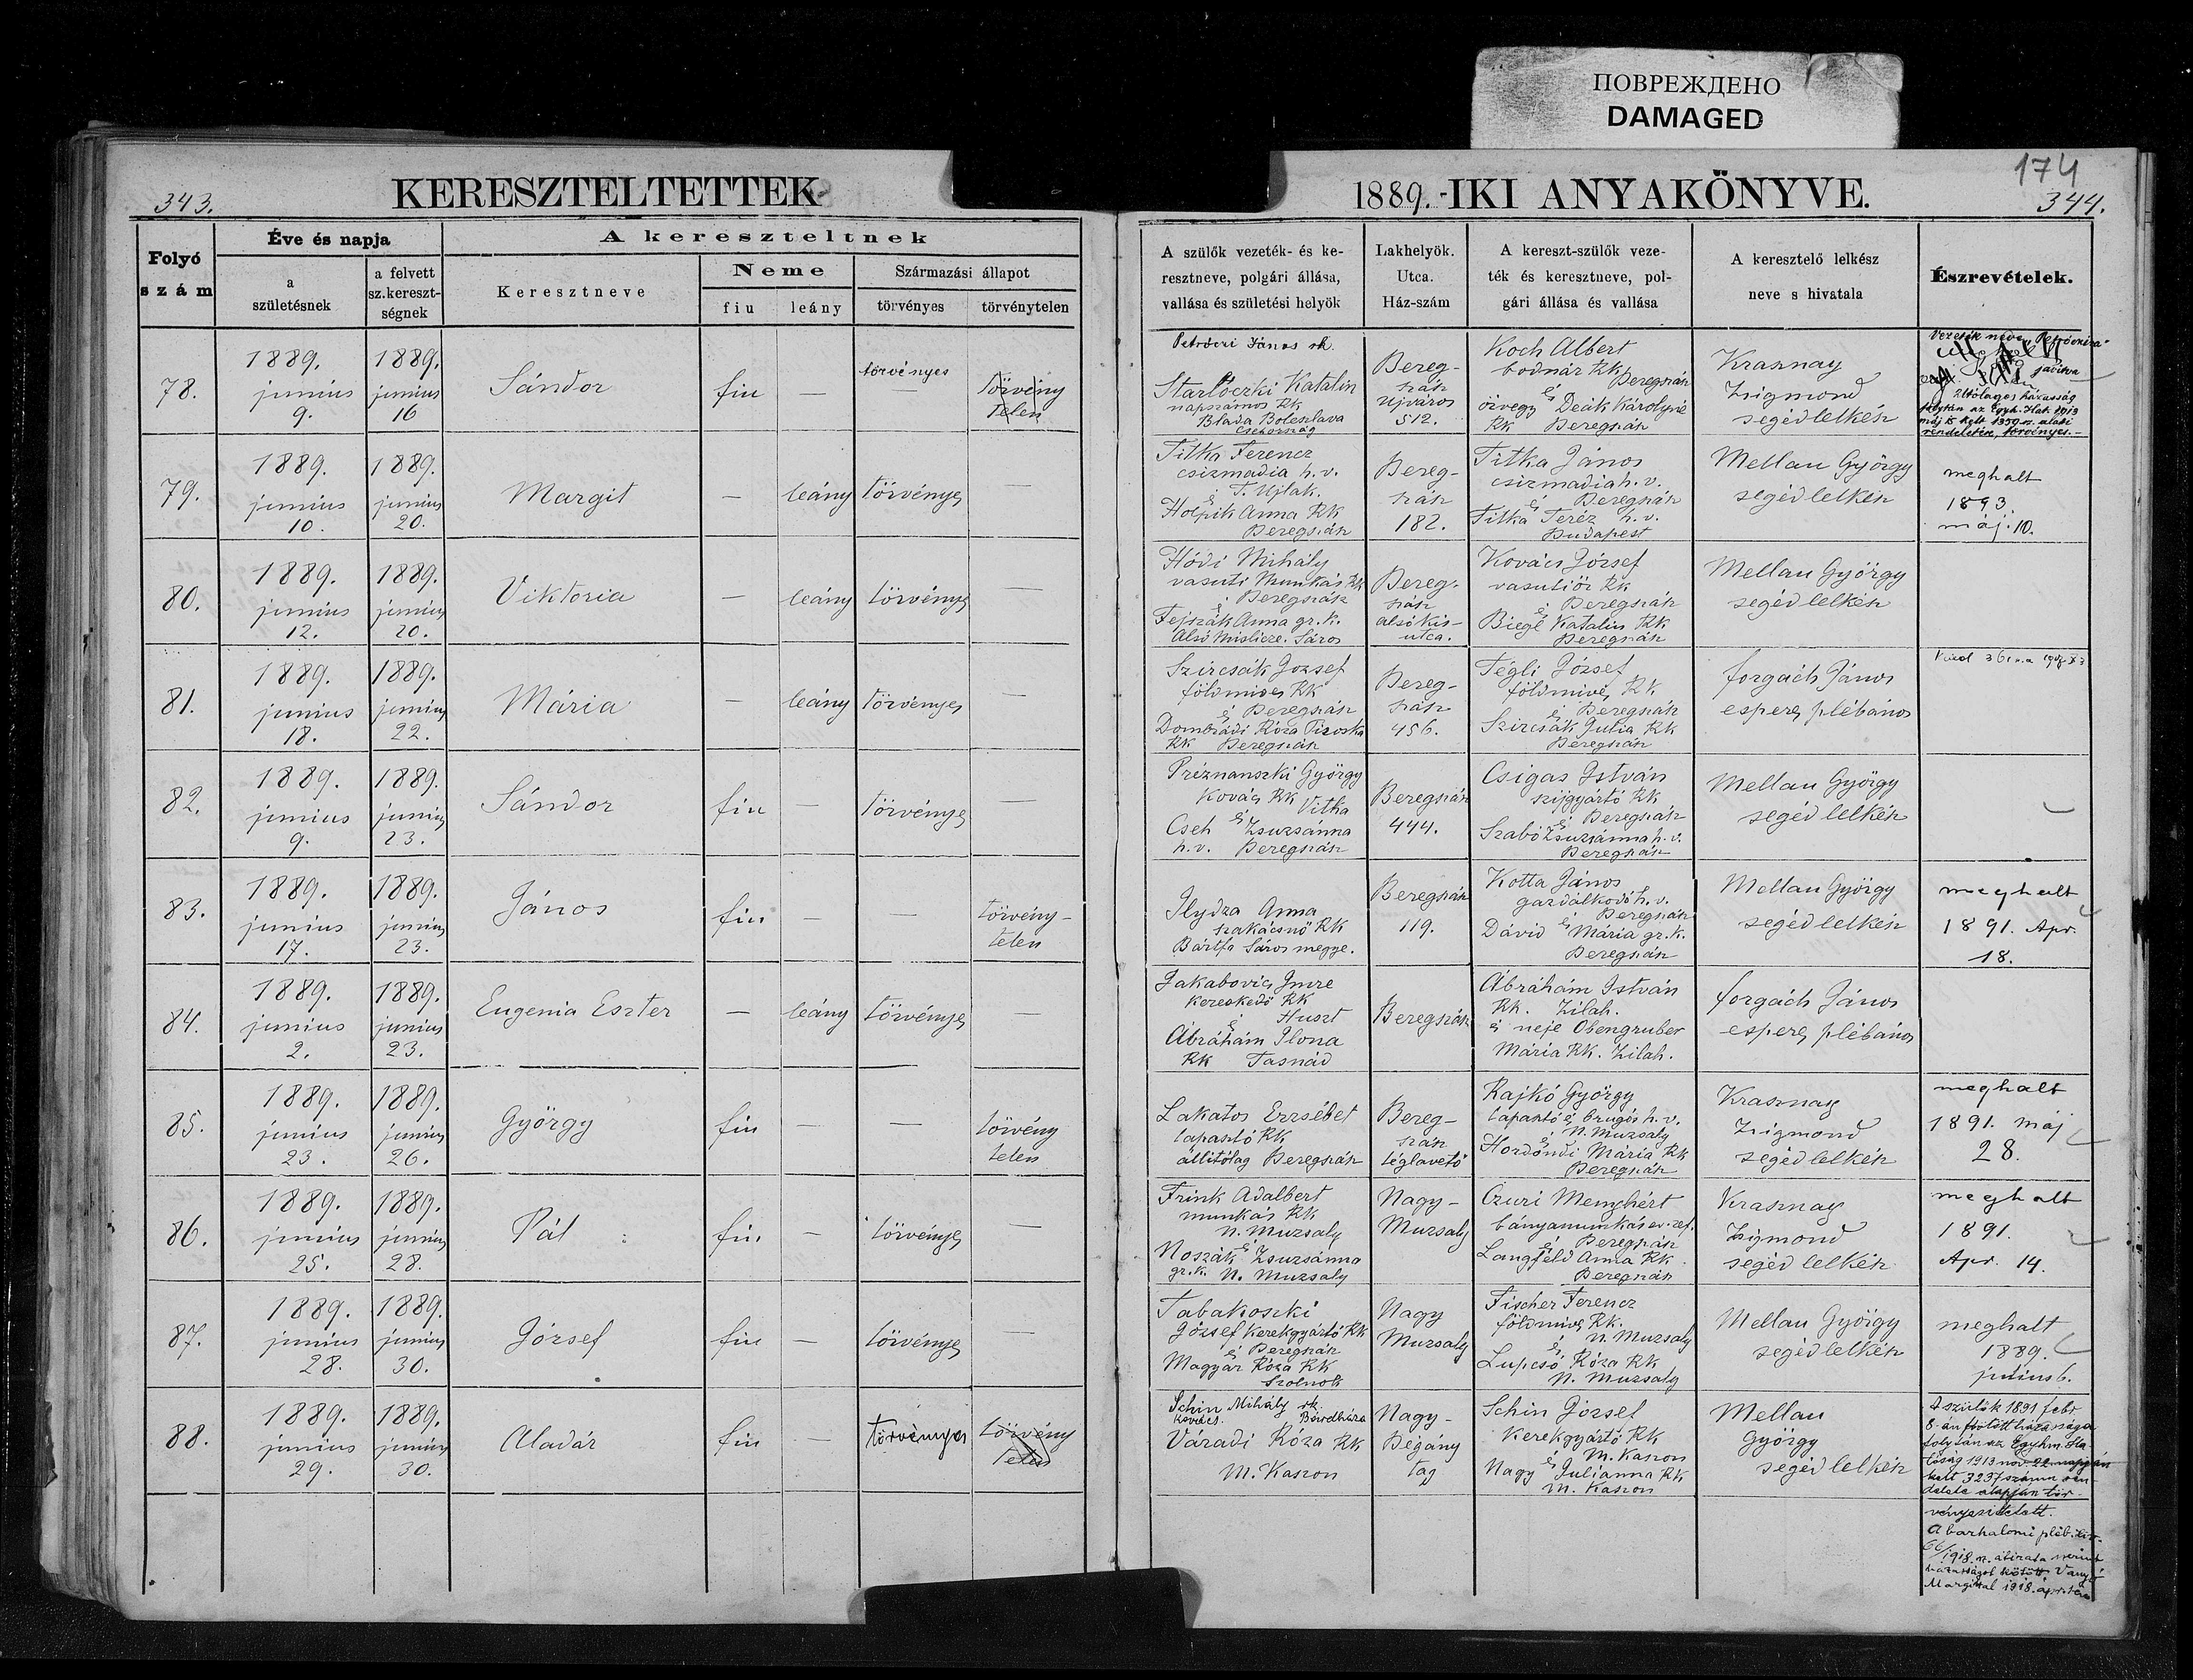 ПОВРЕЖДЕНО
DAMAGED
174
343.
KERESZTELTETTEK
1889.-IKI ANYAKÖNYVE.
344.
Folyó
szám
Éve és napja
a
születésnek
a felvett
sz.kereszt-
ségnek
A kereszteltnek
Keresztneve
Neme
fiu
leány
Származási állapot
törvényes
törvénytelen
A szülők vezeték- és ke-
resztneve, polgári állása,
vallása és születési helyök
Lakhelyök.
Utca.
Ház-szám
A kereszt-szülők veze-
ték és keresztneve, pol-
gári állása és vallása
A keresztelő lelkész
neve s hivatala
Észrevételek.
78.
1889.
junius
9.
1889.
junius
16
Sándor
fiu
—
törvényes
—
törvény
telen
Petróczi János rk.
Starloczki Katalin
napszámos RK
Blada Boleslava
Csehország
Bereg-
szász
Ujváros
512.
Koch Albert
bodnár RK
Beregszász
és
özvegy Deák Károlyné
RK Beregszász
Krasznay
Zsigmond
segédlelkész
Vezeték neve
utólagos házasság
folytán az Egyh. Hat. 1913
rendeletére, törvényes.-
79.
1889.
junius
10.
1889.
junius
20.
Margit
—
leány
törvényes
—
Titka Ferencz
csizmadia h. v.
T. Ujlak.
és
Holpik Anna RK
Beregszász
Bereg-
szász
182.
Titka János
csizmadia h. v.
és Beregszász
Titka Teréz h. v.
Budapest
Mellau György
segédlelkész
meghalt
1893.
máj. 10.
80.
1889.
junius
12.
1889.
junius
20.
Viktoria
—
leány
törvényes
—
Hódi Mihály
vasuti munkás RK
és Beregszász
Fejszák Anna gr. k.
Alsó Mislicze. Sáros
Bereg-
szász
alsó kis-
utca.
Kovács József
vasutiőr RK
és Beregszász
Biegl Katalin RK
Beregszász
Mellau György
segédlelkész
81.
1889.
junius
18.
1889.
junius
22.
Mária
—
leány
törvényes
—
Szircsák József
földmives RK
és Beregszász
Dombrádi Róza Piroska
RK Beregszász
Bereg-
szász
456.
Tégli József
földmivés RK
és Beregszász
Szircsák Julia RK
Beregszász
Forgách János
esperes plébános
82.
1889.
junius
9.
1889.
junius
23.
Sándor
fiu
—
törvényes
—
Préznanszki György
kovács RK Vitka
és
Cseh Zsuzsánna
h. v. Beregszász
Beregszász
444.
Csigas István
szijgyártó RK
és Beregszász
Szabó Zsuzsánna h. v.
Beregszász
Mellau György
segédlelkész
83.
1889.
junius
17.
1889.
junius
23.
János
fiu
—
—
törvény-
telen
Ilydza Anna
szakácsnő RK
Bártfa Sáros megye.
Beregszász
119.
Kotta János
gazdálkodó h. v.
és Beregszász
Dávid Mária gr. k.
Beregszász
Mellau György
segédlelkész
meghalt
1891. Apr.
18.
84.
1889.
junius
2.
1889.
junius
23.
Eugenia Eszter
—
leány
törvényes
—
Jakabovics Imre
kereskedő RK
és Huszt
Ábrahám Ilona
RK Tasnád
Beregszász
Ábrahám István
RK. Zilah.
és neje Obengruber
Mária RK. Zilah.
Forgách János
esperes plébános
85.
1889.
junius
23.
1889.
junius
26.
György
fiu
—
—
törvény
telen
Lakatos Erzsébet
tapasztó RK
állitólag Beregszász
Bereg-
szász
téglavető
Rajkó György
tapasztó és brúgós h. v.
N. Muzsaly
és
Hordondi Mária RK
Beregszász
Krasznay
Zsigmond
segédlelkész
meghalt
1891. máj
28.
86.
1889.
junius
25.
1889.
junius
28.
Pál
fiu
—
törvényes
—
Frink Adalbert
munkás RK
N. Muzsaly
és
Noszák Zsuzsánna
gr. k. N. Muzsaly
Nagy-
Muzsaly
Czuri Menyhért
bányamunkás ev. ref.
és Beregszász
Langfeld Anna RK
Beregszász
Krasznay
Zsigmond
segédlelkész
meghalt
1891.
Apr. 14.
87.
1889.
junius
28.
1889.
junius
30.
József
fiu
—
törvényes
—
Tabakoszki
József kerekgyártó RK
és Beregszász
Magyar Róza RK
Szolnok
Nagy
Muzsaly
Fischer Ferencz
földmives RK.
N. Muzsaly
és
Lupcsó Róza RK
N. Muzsaly
Mellau György
segédlelkész
meghalt
1889.
julius 6.
88.
1889.
junius
29.
1889.
junius
30.
Aladár
fiu
—
törvényes
törvény
telen
Schin Mihály rk.
kovács.
Váradi Róza RK
M. Kaszon
Nagy-
Bégány
tag
Schin József
kerekgyártó RK
M. Kaszon
és
Nagy Julianna RK
M. Kaszon
Mellau
György
segédlelkész
A szülők 1891 febr.
8.-án kötött házassága
folytán az Egyhm. Ha-
tóság 1913 nov. 22 napján
kelt 3237 számu ren-
delete alapján tör-
vényesittetett.
A barhalomi pléb. hiv.
66/1918. sz. átirata szerint
házasságot kötött Vanyó
Margittal 1918. ápr.